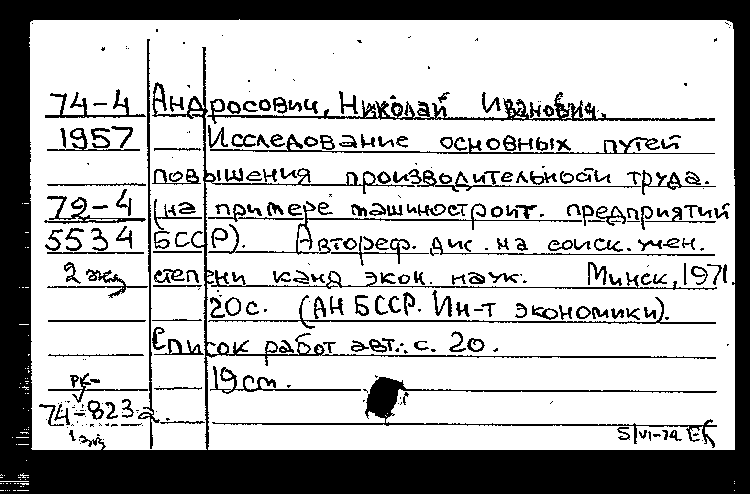 74-4 Андросович, Николай Иванович.
1957 Исследование основных путей
повышения производительности труда.
72-4 (на примере машиностроит. предприятий
5534 БССР). Автореф. дис. на соиск. учен.
2 экз степени канд экон. наук. Минск, 1971.
20с. (АН БССР. Ин-т экономики).
Список работ авт.: с. 20.
19 cm.
РК-
74-823а.
1 экз
5/VI-72